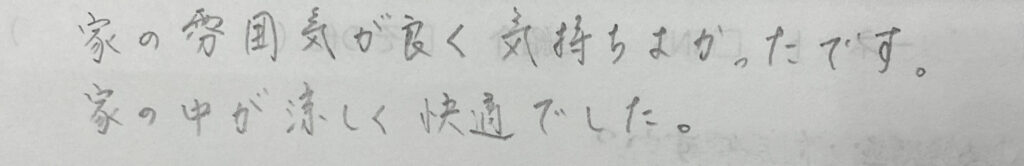 家の雰囲気が良く気持ちよかったです。
家の中が涼しく快適でした。